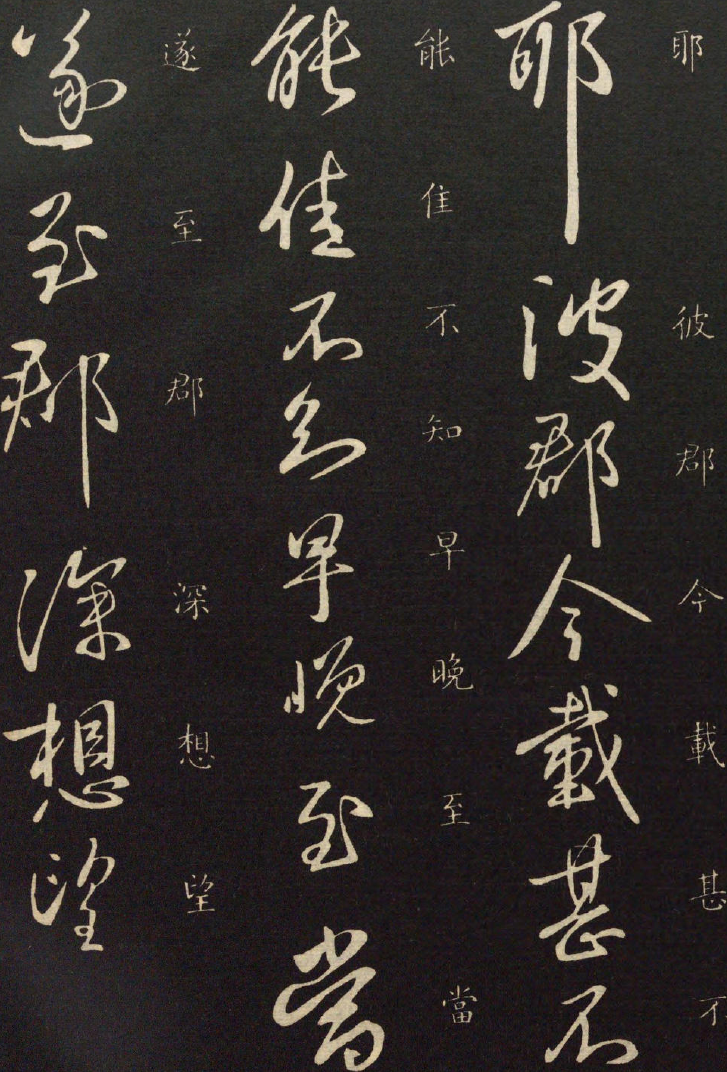 耶彼郡今載甚不
耶彼郡今載甚不
能佳不知早晚至當
能隹不知早晚至當
遂至郡深想望
遂至郡深想望